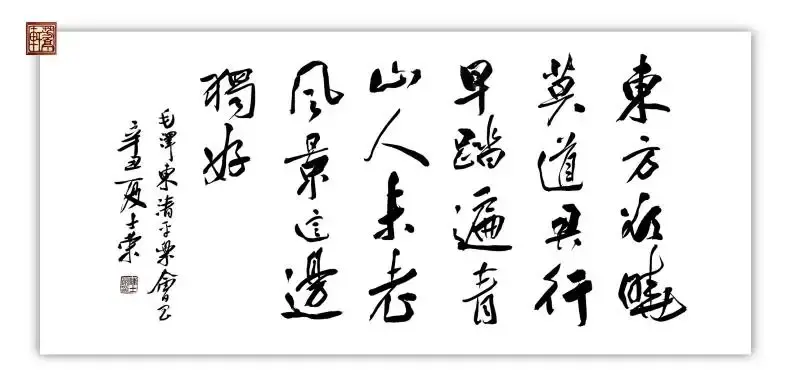 東方欲曉
莫道君行
早踏遍青
山人未老
風景這邊
獨好
毛澤東清平樂會昌
辛丑夏士榮